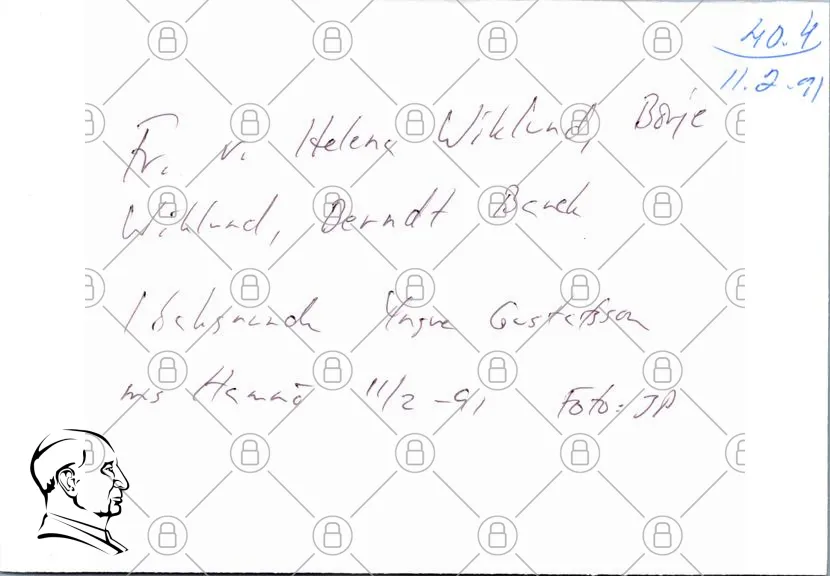 40.4
11.2-91
Fr. v. Helena Wiklund, Börje
Wiklund, Berndt Barck
I bakgrunden Yngve Gustafsson
m/s Hamnö 11/2 -91 Foto: JP